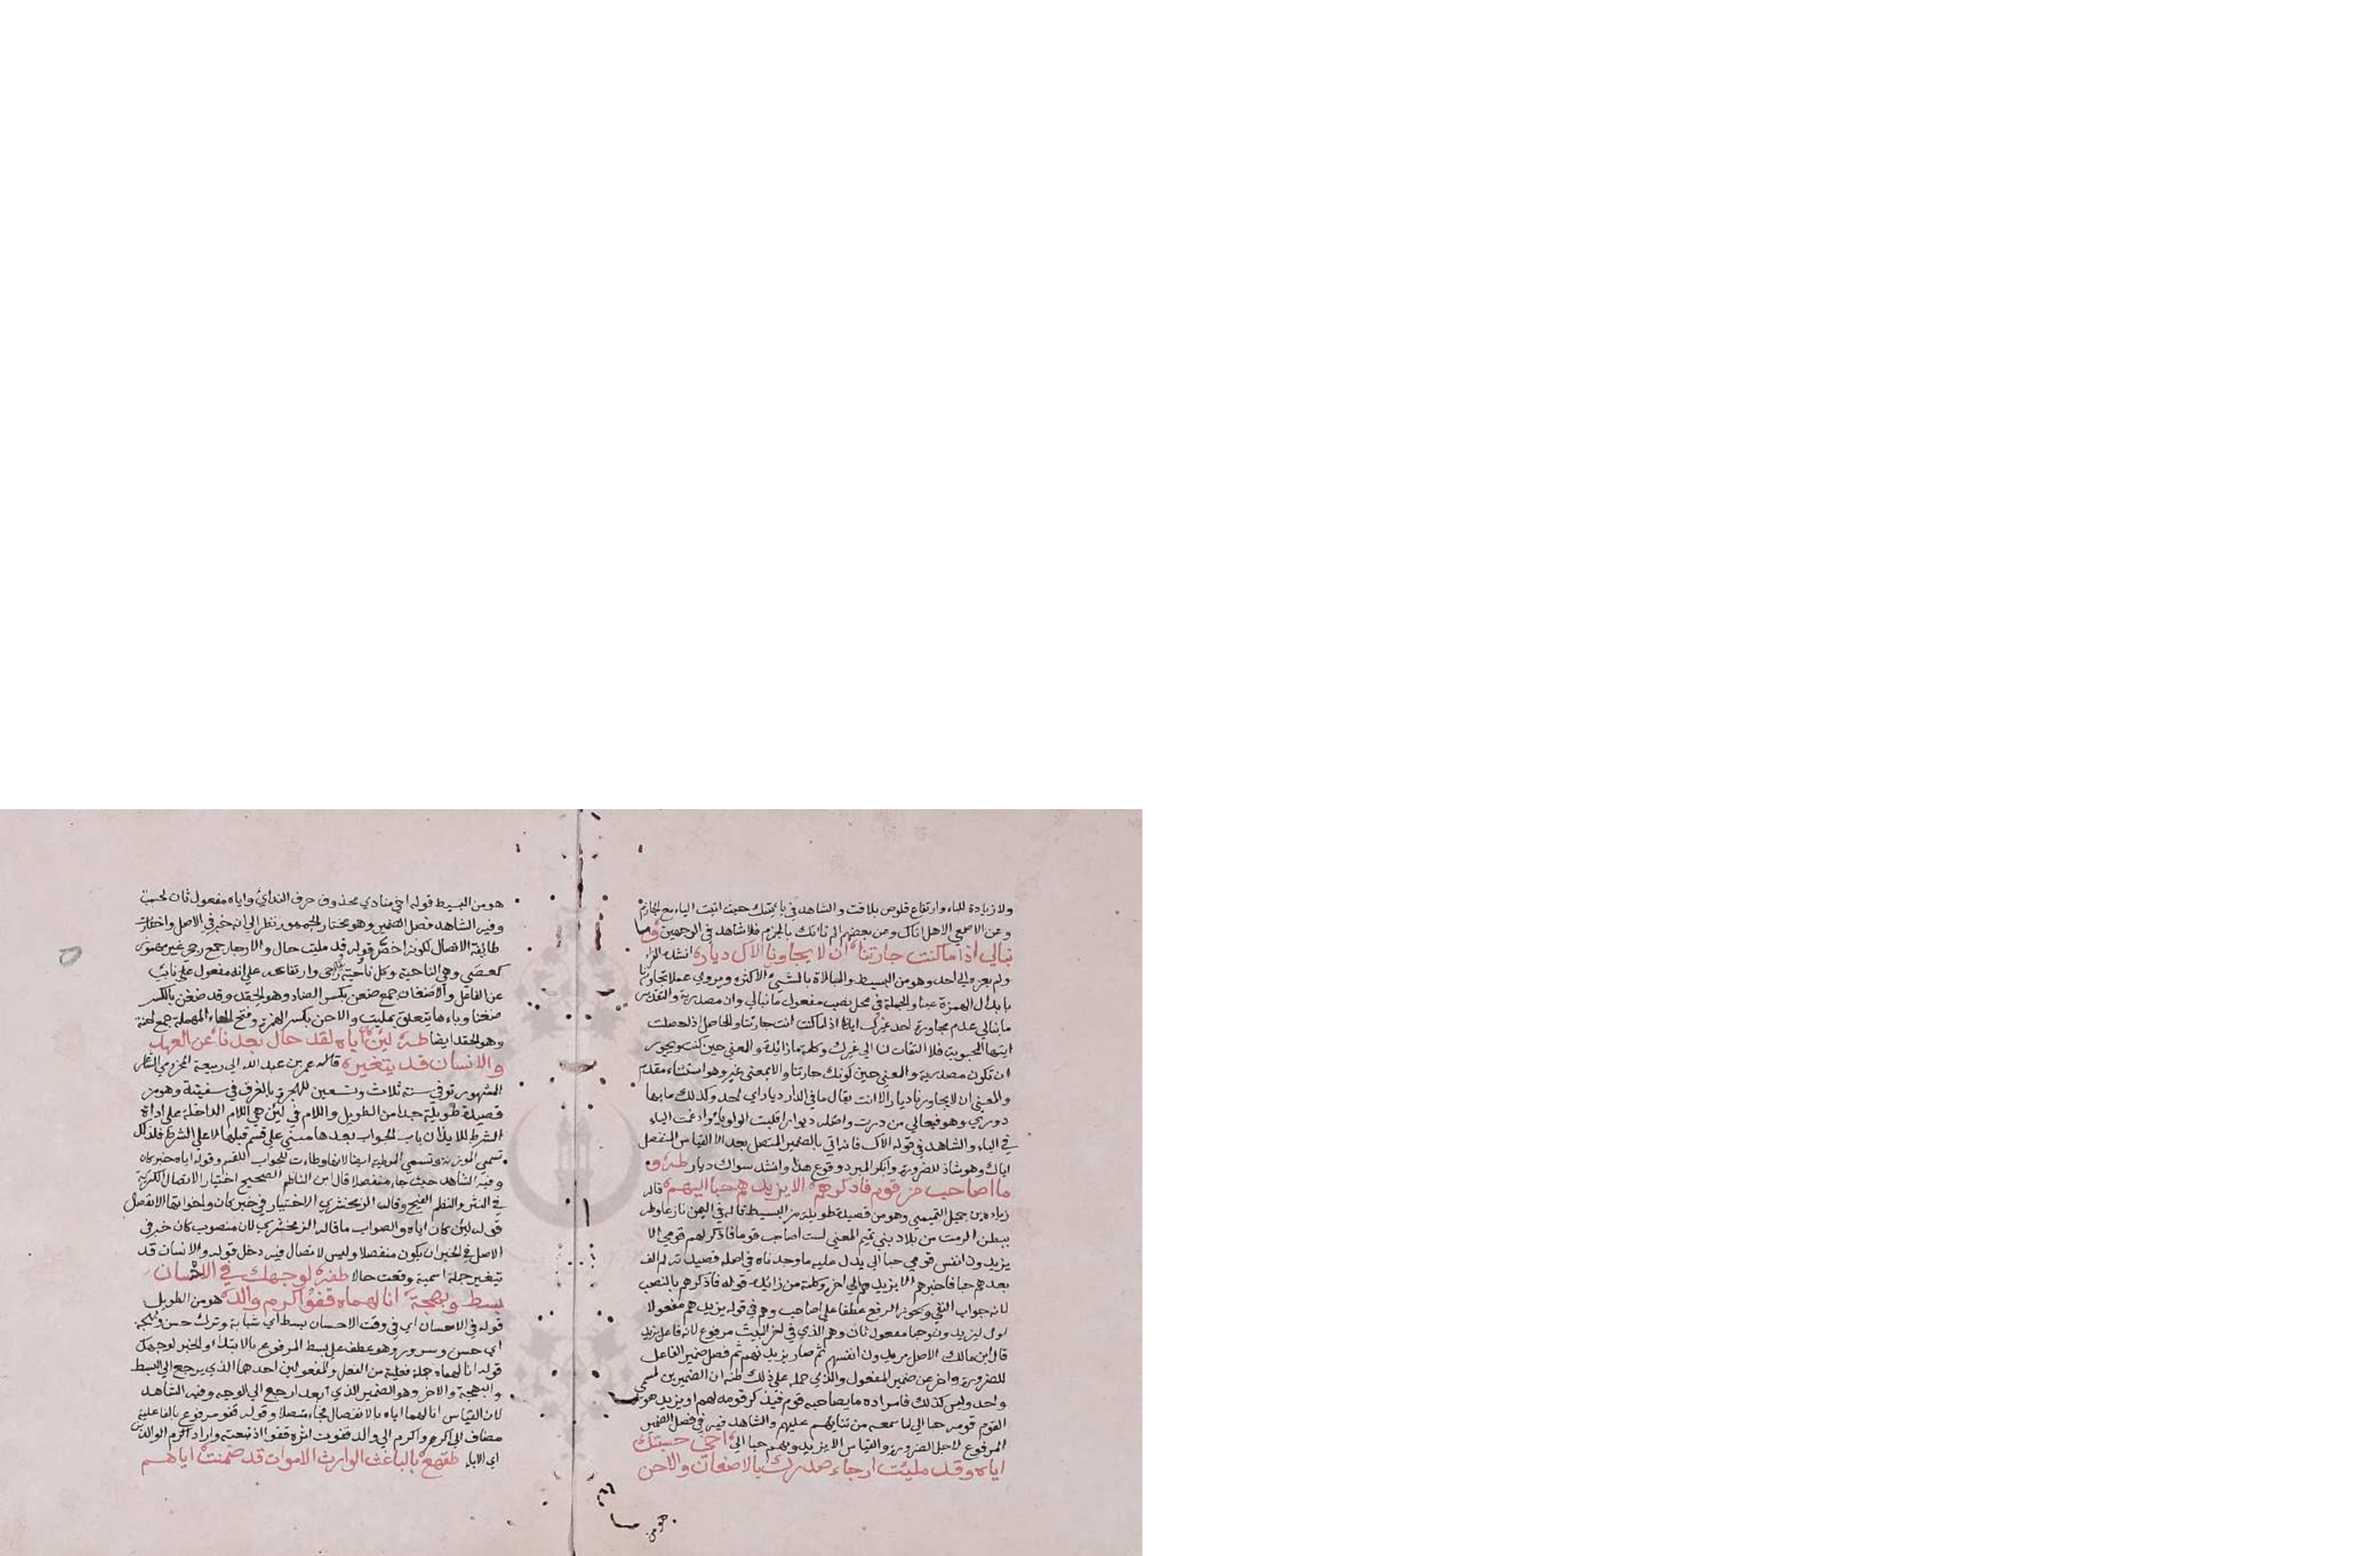 ولا زيادة للباء وارتفاع قلوص بلاقت والشاهد في يا تيك حيث اثبت الياء مع الجازم
وعن الاصمعي الاهل اتاك وعن بعضهم الم ناتك بالجزم فلا شاهد في الوجهين وما
نبالي اذا ما كنت جارتنا ان لا يجاورنا الاك ديار انشده الفراء
ولم يعزه الى احد وهو من البسيط والمبالاة بالشيء الاكتراث ويروى
بابدال الهمزة عينا والجملة في محل نصب مفعول ما نبالي وان مصدرية والتقدير
ما نبالي عدم مجاورة احد غيرك ايانا اذا ما كنت انت جارتنا والحاصل اذا حصلت
ايتها المحبوبة فلا التفات لنا الى غيرك وكلمة ما زائدة والمعنى حين كنت ويجوز
ان تكون مصدرية والمعنى حين كونك جارتنا والا بمعنى غير وهو استثناء مقدم
والمعنى ان لا يجاورنا ديار الا انت يقال ما في الدار ديار اي احد وكذلك ما بها
دوري وهو فيعال من درت واصله ديوار قلبت الواو ياء وادغمت الياء
في الياء والشاهد في قوله الاك فانه اتى بالضمير المتصل بعد الا القياس المنفصل
اياك وهو شاذ للضرورة وانكر المبرد وقوع هذا وانشد سواك ديار
ما اصاحب من قوم فاذكرهم الا يزيدهم حبا الي هم قاله
زياد بن جميل التميمي وهو من قصيدة طويلة من البسيط قاله في اليمن نازعا وطر
ببطن الرمث من بلاد بني تميم المعنى لست اصاحب قوما فاذكر لهم قومي الا
يزيدون انفس قومي حبا الي يدل عليه ما وجدناه في اصل قصيدته لم الف
بعدهم حيا فاخبرهم الا يزيدهم الى اخره وكلمة من زائدة قوله فاذكرهم بالنصب
لانه جواب النفي ويجوز الرفع عطفا على اصاحب وهم في قوله يزيدهم مفعولا
اول ليزيدون وحبا مفعول ثان وهم الذي في اخر البيت مرفوع لانه فاعل يزيد
قال ابن مالك الاصل يزيدون انفسهم ثم صار يزيدونهم ثم فصل ضمير الفاعل
للضرورة واخر عن ضمير المفعول والذي حمله على ذلك ظنه ان الضميرين لمسمى
واحد وليس كذلك فان مراده ما يصاحب قوم فيذكر قومه لهم او يزيد هو
القوم قومه حبا اليه لما سمعه من ثنائهم عليهم والشاهد فيه في فصل الضمير
المرفوع لاجل الضرورة والقياس الا يزيدونهم حبا الي اخي حسبتك
اياه وقد ملئت ارجاء صدرك بالاضغان والاحن
هو من
هو من البسيط قوله اخي منادى محذوف حرف النداء واياه مفعول ثان لحسبت
وفيه الشاهد فصل الضمير وهو مختار الجمهور نظرا الى انه خبر في الاصل واختارت
طائفة الاتصال لكونه اخصر قوله قد ملئت حال والارجاء جمع رجى غير مهموز
كعصى وهي الناحية وكل ناحية رجى وارتفاعه على انه مفعول على نائب
عن الفاعل والاضغان جمع ضغن بكسر الضاد وهو الحقد وقد ضغن بالكسر
ضغنا وباءها يتعلق بملئت والاحن بكسر الهمزة وفتح الحاء المهملة جمع احنة
وهو الحقد ايضا لئن كان اياه لقد حال بعدنا عن العهد
والانسان قد يتغير قاله عمر بن عبد الله ابي ربيعة المخزومي الشاعر
المشهور توفي سنة ثلاث وتسعين للهجرة بالغرق في سفينة وهو من
قصيدة طويلة جدا من الطويل واللام في لئن هي اللام الداخلة على اداة
الشرط للايذان بان الجواب بعدها مبني على قسم قبلها لا على الشرط فلذلك
تسمى الموذنة وتسمى الموطئة ايضا لانها وطاءت للجواب للقسم وقوله اياه خبر كان
وفيه الشاهد حيث جاء منفصلا قال ابن الناظم الصحيح اختيار الاتصال لكثرته
في النثر والنظم الفصيح وقال الزمخشري الاختيار في خبر كان واخواتها الانفصال
قوله لئن كان اياه والصواب ما قاله الزمخشري لان منصوب كان خبر في
الاصل في الخبر ان يكون منفصلا وليس لاتصال فيه دخل قوله والانسان قد
يتغير جملة اسمية وقعت حالا لوجهك في الاحسان
بسط وبهجة انالهماه قفو اكرم والد هو من الطويل
قوله في الاحسان اي في وقت الاحسان بسط اي بشاشة وترك حسن وبهجة
اي حسن وسرور وهو عطف على بسط المرفوع بالابتداء والخبر لوجهك
قوله انالهماه جملة فعلية من الفعل والمفعولين احدهما الذي يرجع الى البسط
والبهجة والاخر وهو الضمير الذي ارجع الى الوجه وفيه الشاهد
لان القياس انالهما اياه بالانفصال فجاء متصلا وقوله قفو مرفوع بالفاعلية
مضاف الى اكرم واكرم الى والد قفوت اثره قفوا اذ تبعته واراد اكرم الوالدين
اي الاباء بالباعث الوارث الاموات قد ضمنت اياهم